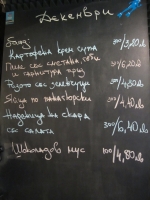 Декември
Обяд:
Картофена крем супа 300/3,80лв
Пиле със сметана, 
и гарнитура 350/6,20лв
Ризото със зеленчуци 300/4,80лв
Яйца по панагюрски 300/4,40лв
Наденица на скара
със салата 300/6,40лв
Шоколадов мус 100/4,80лв